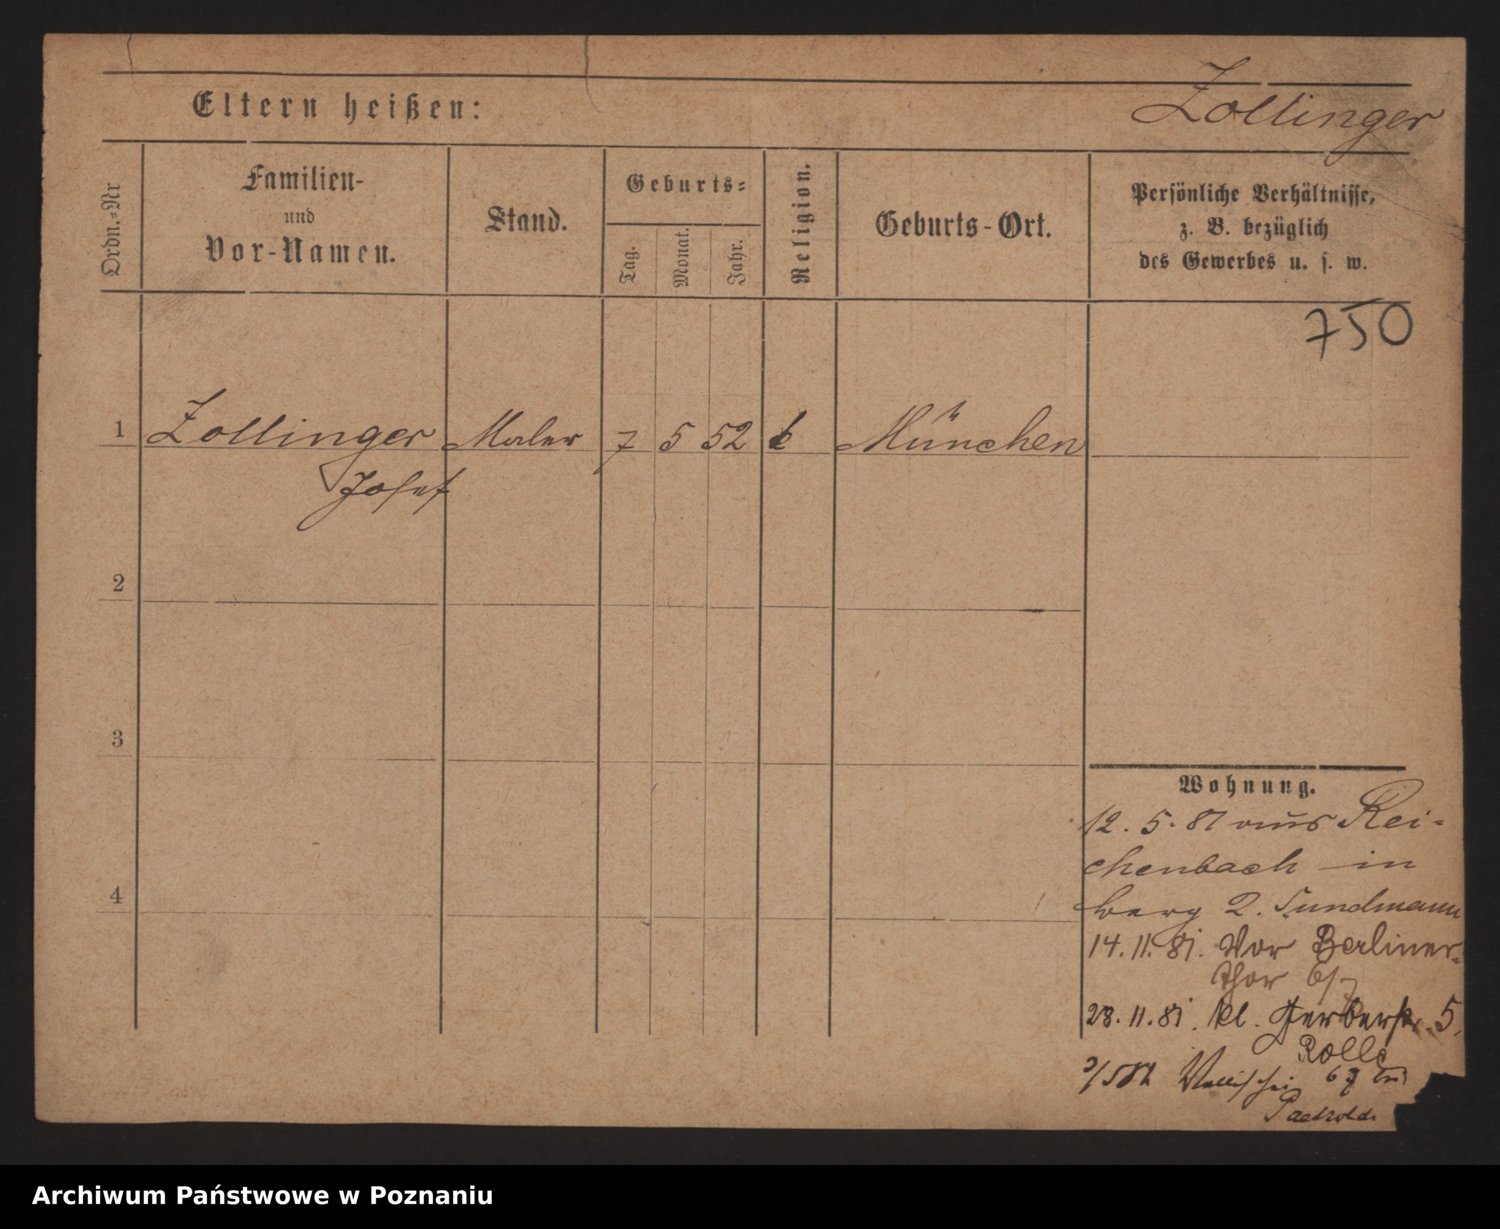 Eltern heißen:
Zollinger
Ordn.-Nr
Familien-
und
Vor-Namen.
Stand.
Geburts-
Tag.
Monat.
Jahr.
Religion.
Geburts-Ort.
Persönliche Verhältnisse,
z. B. bezüglich
des Gewerbes u. s. w.
750
1 Zollinger Maler 7 5 52 k München
Josef
2
3
4
Wohnung.
12. 5. 81 aus Rei-
chenbach in
berg 2. Sundmann
14. 11. 81. Vor Berliner-
thor
28. 11. 81. kl. Gerberstr. 5.
Rolle
Wallischei 67 bei
Archiwum Państwowe w Poznaniu